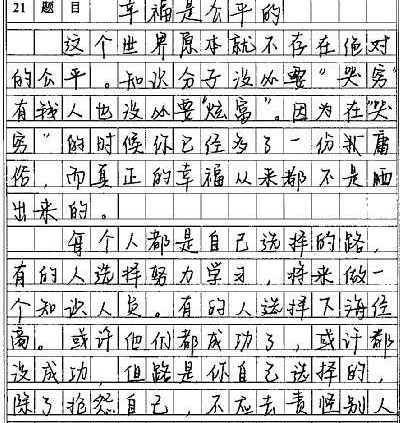 21 题目 幸福是公平的
这个世界原本就不存在绝对
的公平。知识分子没必要“哭穷”
有钱人也没必要“炫富”。因为在“哭
穷”的时候你已经多了一份庸
俗，而真正的幸福从来都不是晒
出来的。
每个人都是自己选择的路，
有的人选择努力学习，将来做一
个知识人员。有的人选择下海经
商。或许他们都成功了，或许都
没成功，但路是你自己选择的，
除了抱怨自己，不应去责怪别人